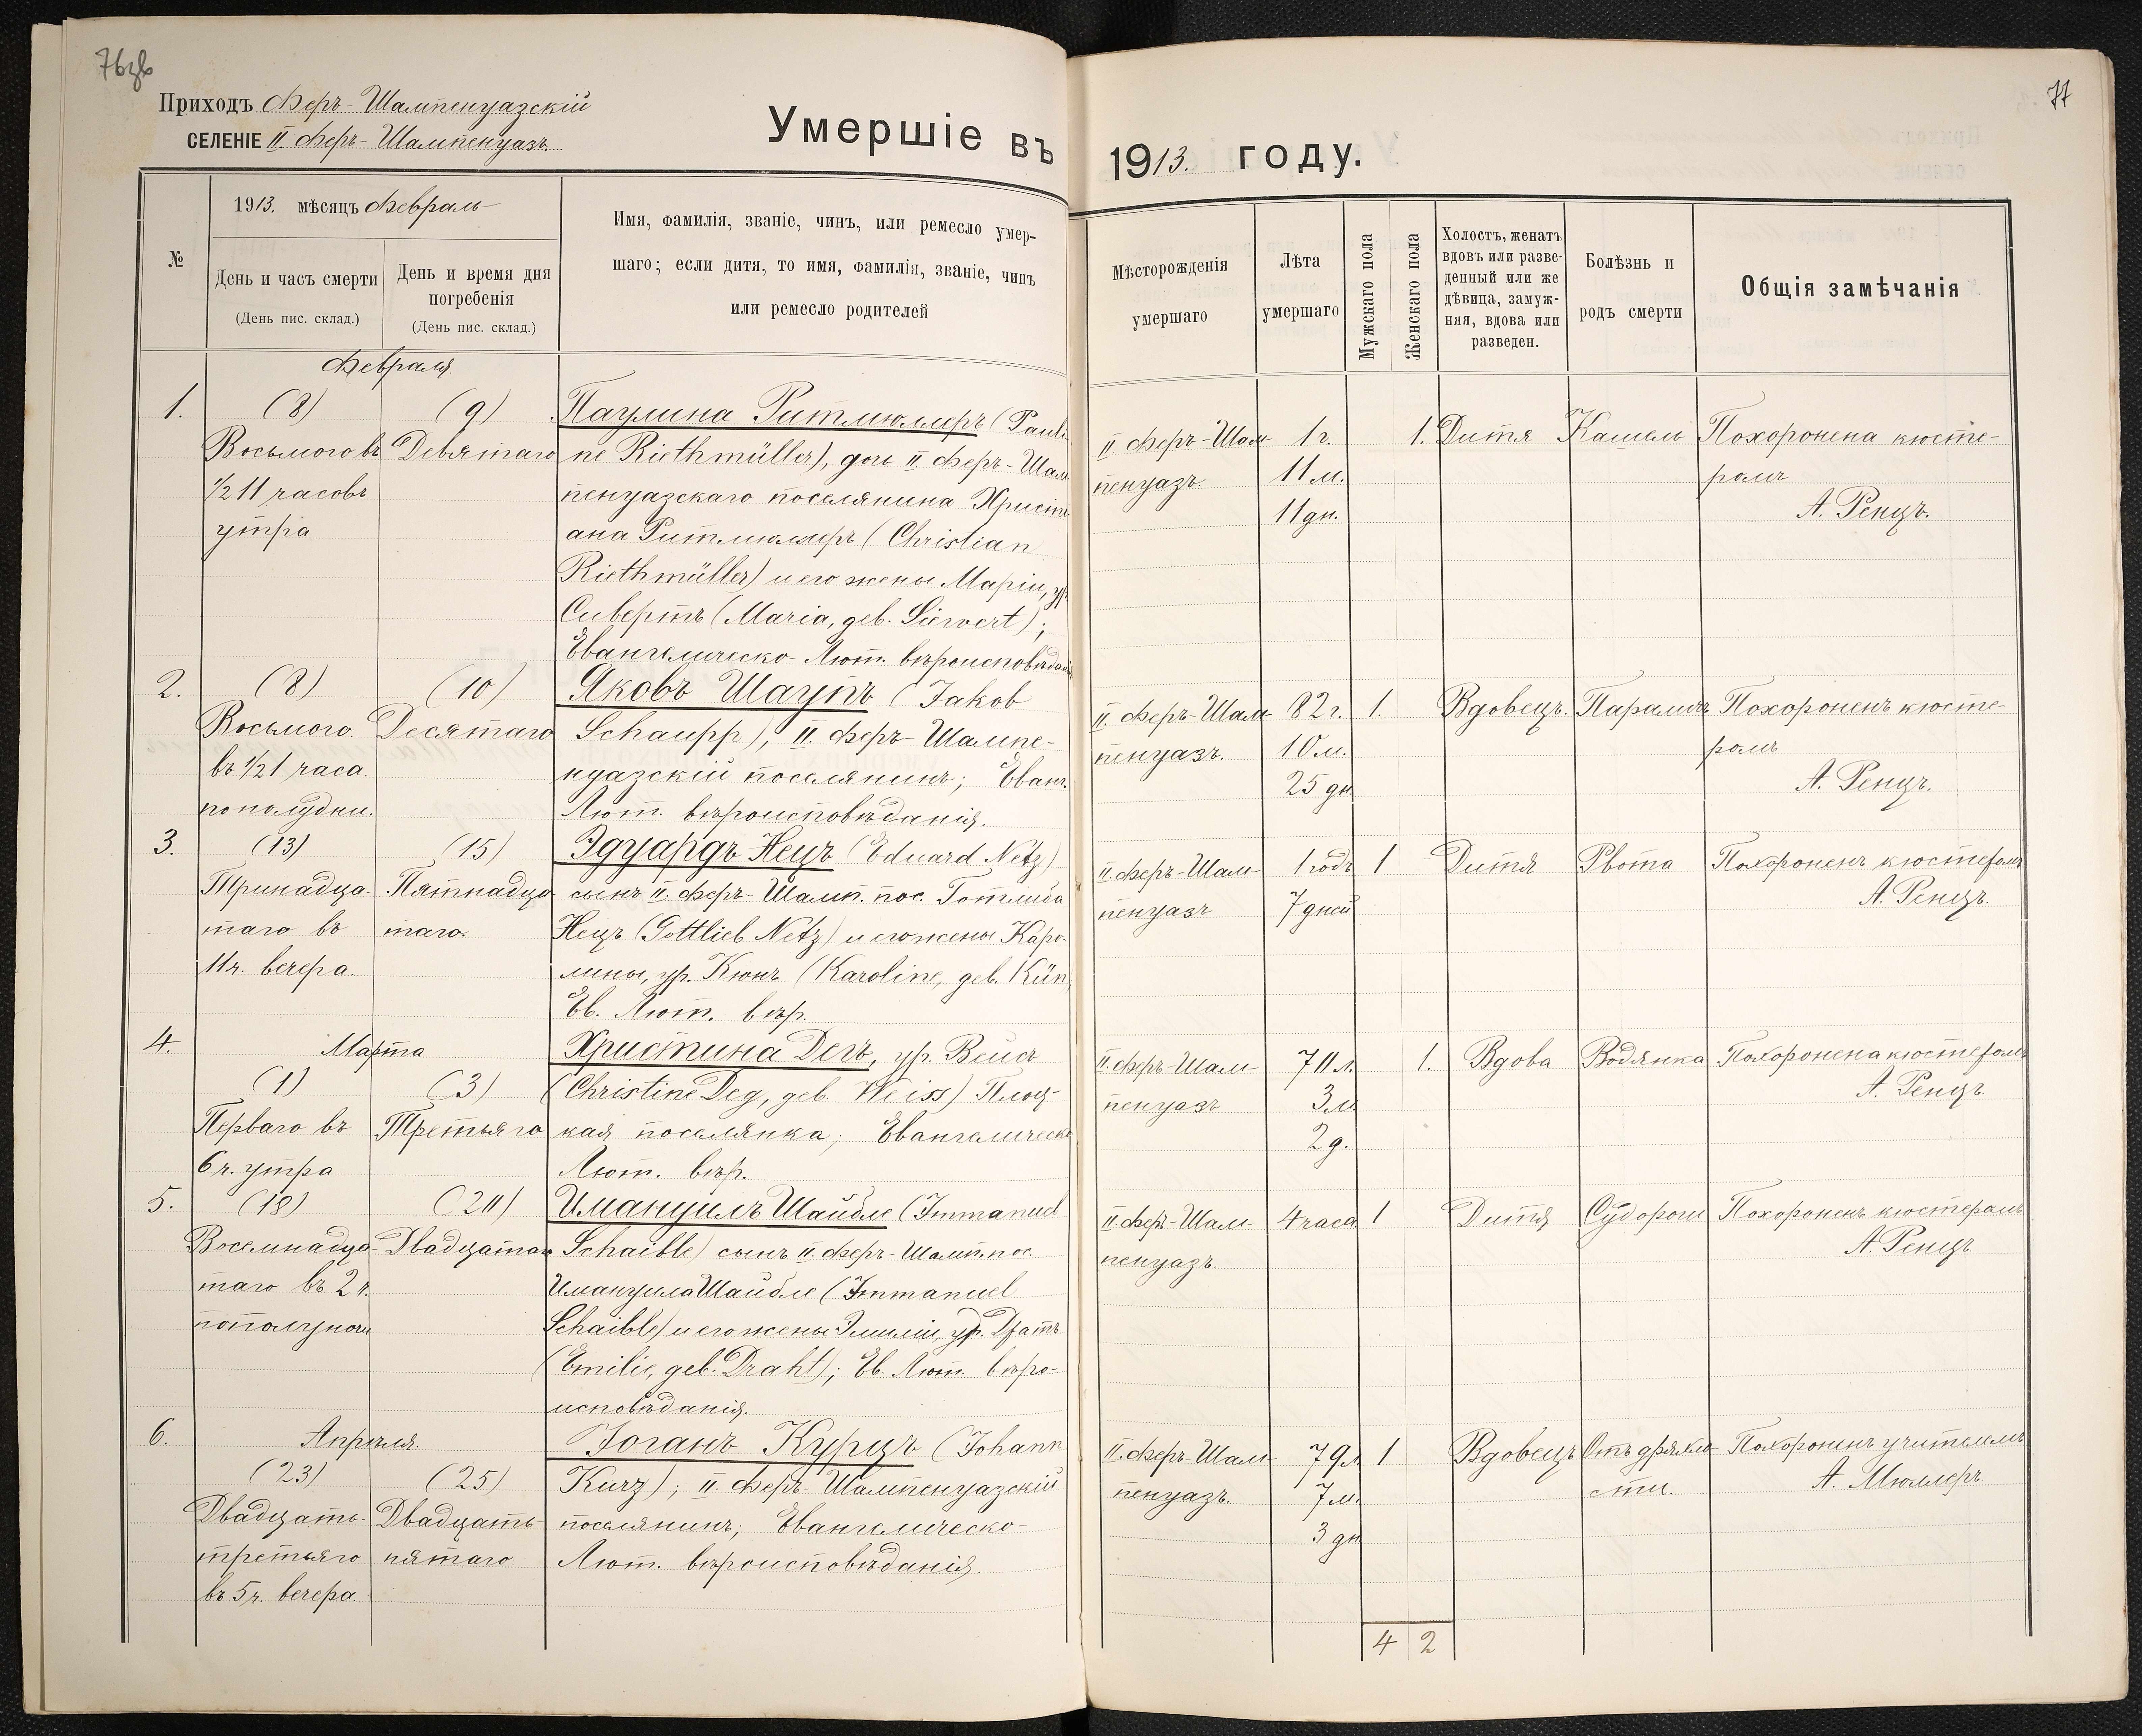 76зв
77
Приходъ Феръ-Шампенуазскій
СЕЛЕНІЕ II. Феръ-Шампенуазъ.
Умершіе въ 1913. году.
№
1913. мѣсяцъ Февраль
День и часъ смерти
(День пис. склад.)
День и время дня
погребенія
(День пис. склад.)
Имя, фамилія, званіе, чинъ, или ремесло умер-
шаго; если дитя, то имя, фамилія, званіе, чинъ
или ремесло родителей
Мѣсторожденія
умершаго
Лѣта
умершаго
Мужскаго пола
Женскаго пола
Холостъ, женатъ
вдовъ или разве-
денный или же
дѣвица, замуж-
няя, вдова или
разведен.
Болѣзнь и
родъ смерти
Общія замѣчанія
Февраля.
1.
(8)
Восьмого въ
1/2 11 часовъ
утра
(9)
Девятаго
Паулина Ритмюллеръ (Pauli-
ne Riethmüller), дочь II Феръ-Шам
пенуазскаго поселянина Христи
ана Ритмюллеръ (Christian
Riethmüller) и его жены Маріи, ур.
Сивертъ (Maria, geb. Siewert);
Евангелическо-Лют. вѣроисповѣданія
II Феръ-Шам-
пенуазъ.
1 г.
11 м.
11 дн.
1.
Дитя
Кашель
Похоронена кюсте-
ромъ
А. Ренцъ.
2.
(8)
Восьмого.
въ 1/2 1 часа.
по полудни.
(10)
Десятаго
Яковъ Шаупъ (Jakob
Schaupp), II. Феръ-Шампе-
нуазскій поселянинъ; Еванг.
Лют. вѣроисповѣданія.
II. Феръ-Шам-
пенуазъ.
82 г.
10 м.
25 дн.
1.
Вдовецъ.
Параличъ
Похороненъ кюсте-
ромъ
А. Ренцъ.
3.
(13)
Тринадца-
таго въ
11 ч. вечера.
(15)
Пятнадца
таго.
Эдуардъ Нецъ (Eduard Netz)
сынъ II Феръ-Шамп. пос. Готлиба
Нецъ (Gottlieb Netz) и его жены Каро-
лины, ур. Кюнъ (Karoline, geb. Kün
Ев. Лют. вѣр.
II. Феръ-Шам-
пенуазъ
1 годъ
7 дней
1
Дитя
Рвота
Похороненъ кюстеромъ
А. Ренцъ.
4.
Марта
(1)
Перваго въ
6 ч. утра
(3)
Третьяго
Христина Дегъ, ур. Вейсъ
(Christine Deg, geb. Weiss) Плоц-
кая поселянка; Евангелическо
Лют. вѣр.
II. Феръ-Шам-
пенуазъ
70 л.
3 м.
2 д.
1.
Вдова
Водянка
Похоронена кюстеромъ
А. Ренцъ.
5.
(18)
Восемнадца-
таго въ 2 ч.
пополуночи
(20)
Двадцатаго
Имануилъ Шайбле (Immanuel
Schaible) сынъ II. Феръ-Шамп. пос.
Имануила Шайбле (Immanuel
Schaible) и его жены Эмиліи, ур. Дратъ
(Emilie, geb. Draht); Ев. Лют. вѣро-
исповѣданія.
II Феръ-Шам-
пенуазъ.
4 часа
1
Дитя
Судороги
Похороненъ кюстеромъ
А. Ренцъ
6.
Апрѣля.
(23)
Двадцать-
третьяго
въ 5 ч. вечера.
(25)
Двадцать-
пятаго
Іоганъ Курцъ (Johann
Kurz); II. Феръ-Шампенуазскій
поселянинъ; Евангелическо-
Лют. вѣроисповѣданія.
II. Феръ-Шам-
пенуазъ.
79 л
7 м.
3 дн
1
Вдовецъ
Отъ дряхло-
сти.
Похороненъ учителемъ
А. Мюллеръ
4 2